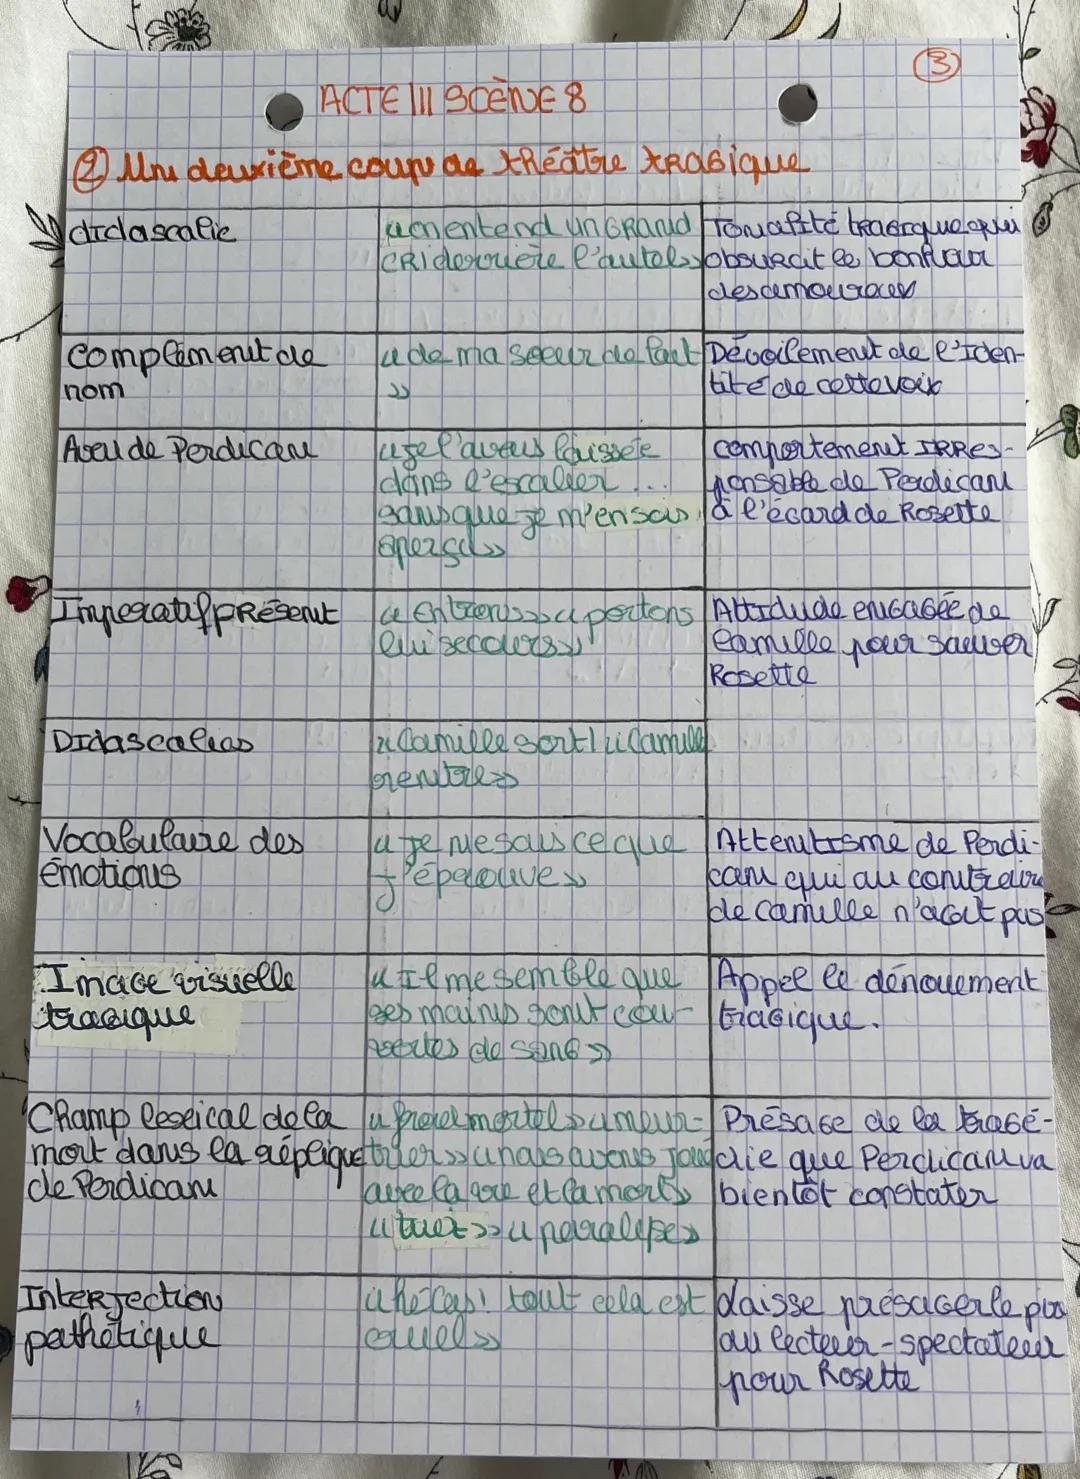 ③
ACTE III SCÈNE 8
② Un deuxième coup de théâtre tragique
didascalie
« on entend un grand
cri derrière l'autel »
Tonalité tragique qui
obscurcit le bonheur
des amoureux
complément de
nom
« de ma soeur de lait
»
Dévoilement de l'iden-
tité de cette voix
Aveu de Perdican
« je l'avais laissée
dans l'escalier ...
sans que je m'en sois
aperçu »
comportement irres-
ponsable de Perdican
à l'écard de Rosette
Imperatif présent
« entrons » « portons
lui secours »
Attidude engagée de
Camille pour sauver
Rosette
Didascalies
« Camille sort » « Camille
rentre »
Vocabulaire des
émotions
« je ne sais ce que
j'éprouve »
Attentisme de Perdi-
can qui au contraire
de Camille n'agit pas
Image visuelle
tragique
« Il me semble que
ses mains sont cou-
vertes de sang »
Appel le dénouement
tragique.
Champ lexical de la
mort dans la réplique
de Perdican
« froid mortel » « meur-
trier » « nous avons joué
avec la vie et la mort »
« tuez » « paralyse »
Présage de la tragé-
die que Perdican va
bientôt constater
Interjection
pathétique
« hélas! tout cela est
cruel »
laisse présager le pire
au lecteur-spectateur
pour Rosette